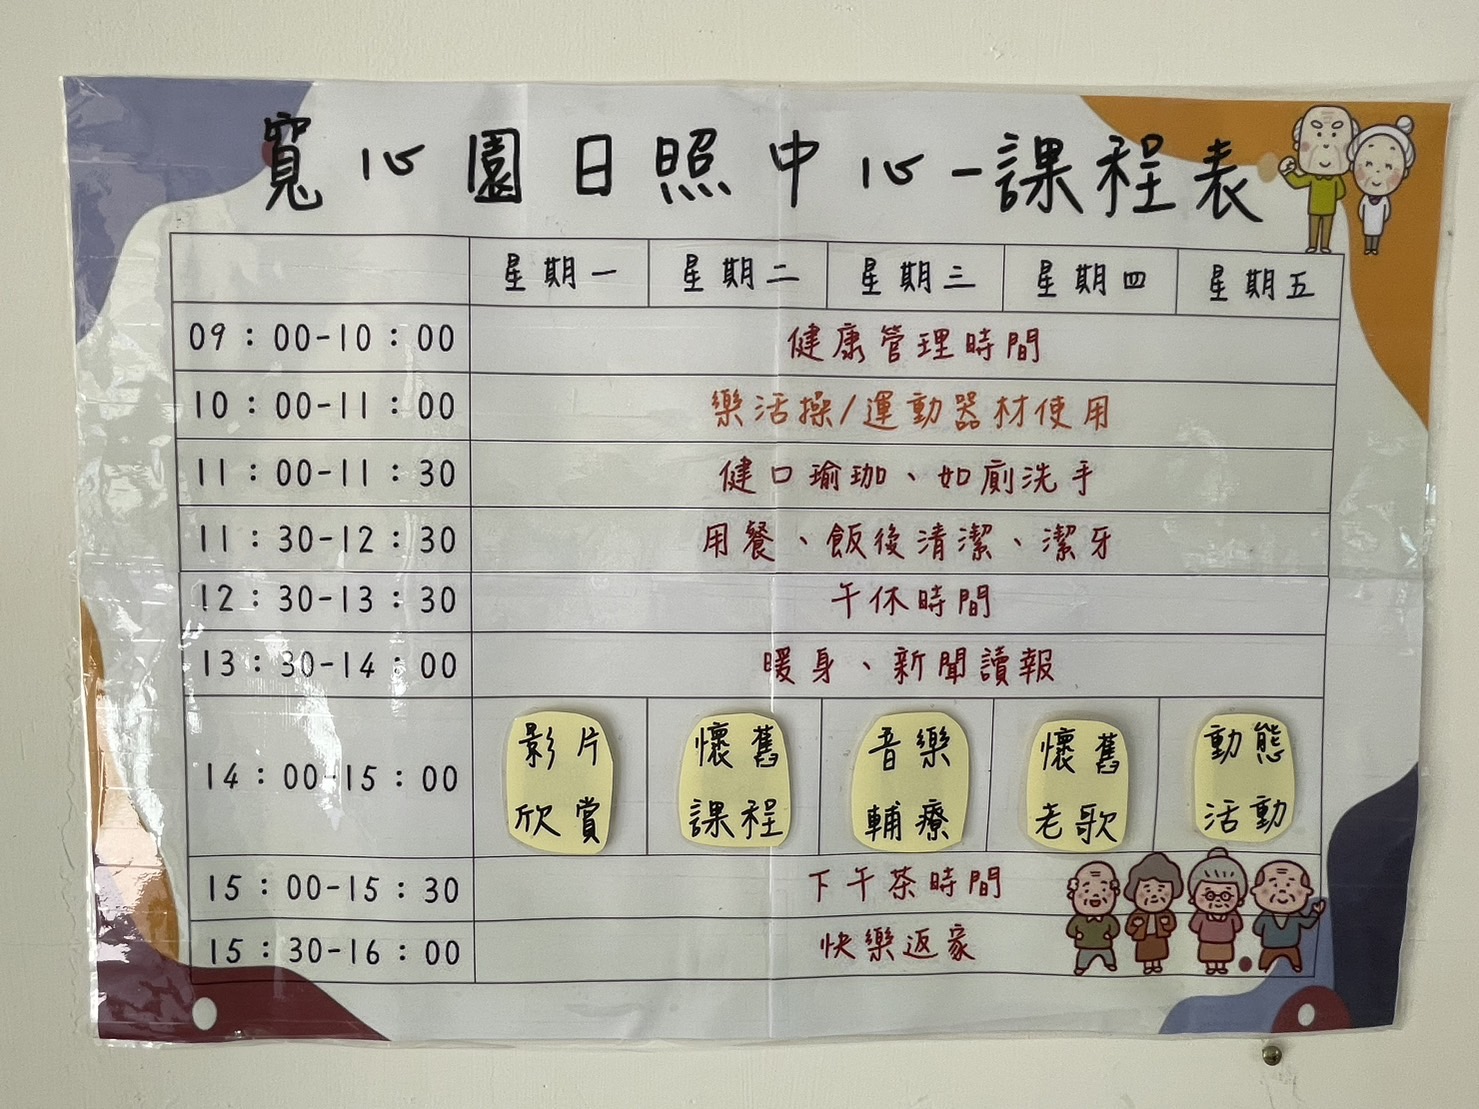 寬心園日照中心-課程表
星期一 星期二 星期三 星期四 星期五
09：00-10：00 健康管理時間
10：00-11：00 樂活操/運動器材使用
11：00-11：30 健口瑜珈、如廁洗手
11：30-12：30 用餐、飯後清潔、潔牙
12：30-13：30 午休時間
13：30-14：00 暖身、新聞讀報
影片 懷舊 音樂 懷舊 動態
14：00-15：00
欣賞 課程 輔療 老歌 活動
15：00-15：30 下午茶時間
15：30-16：00 快樂返家